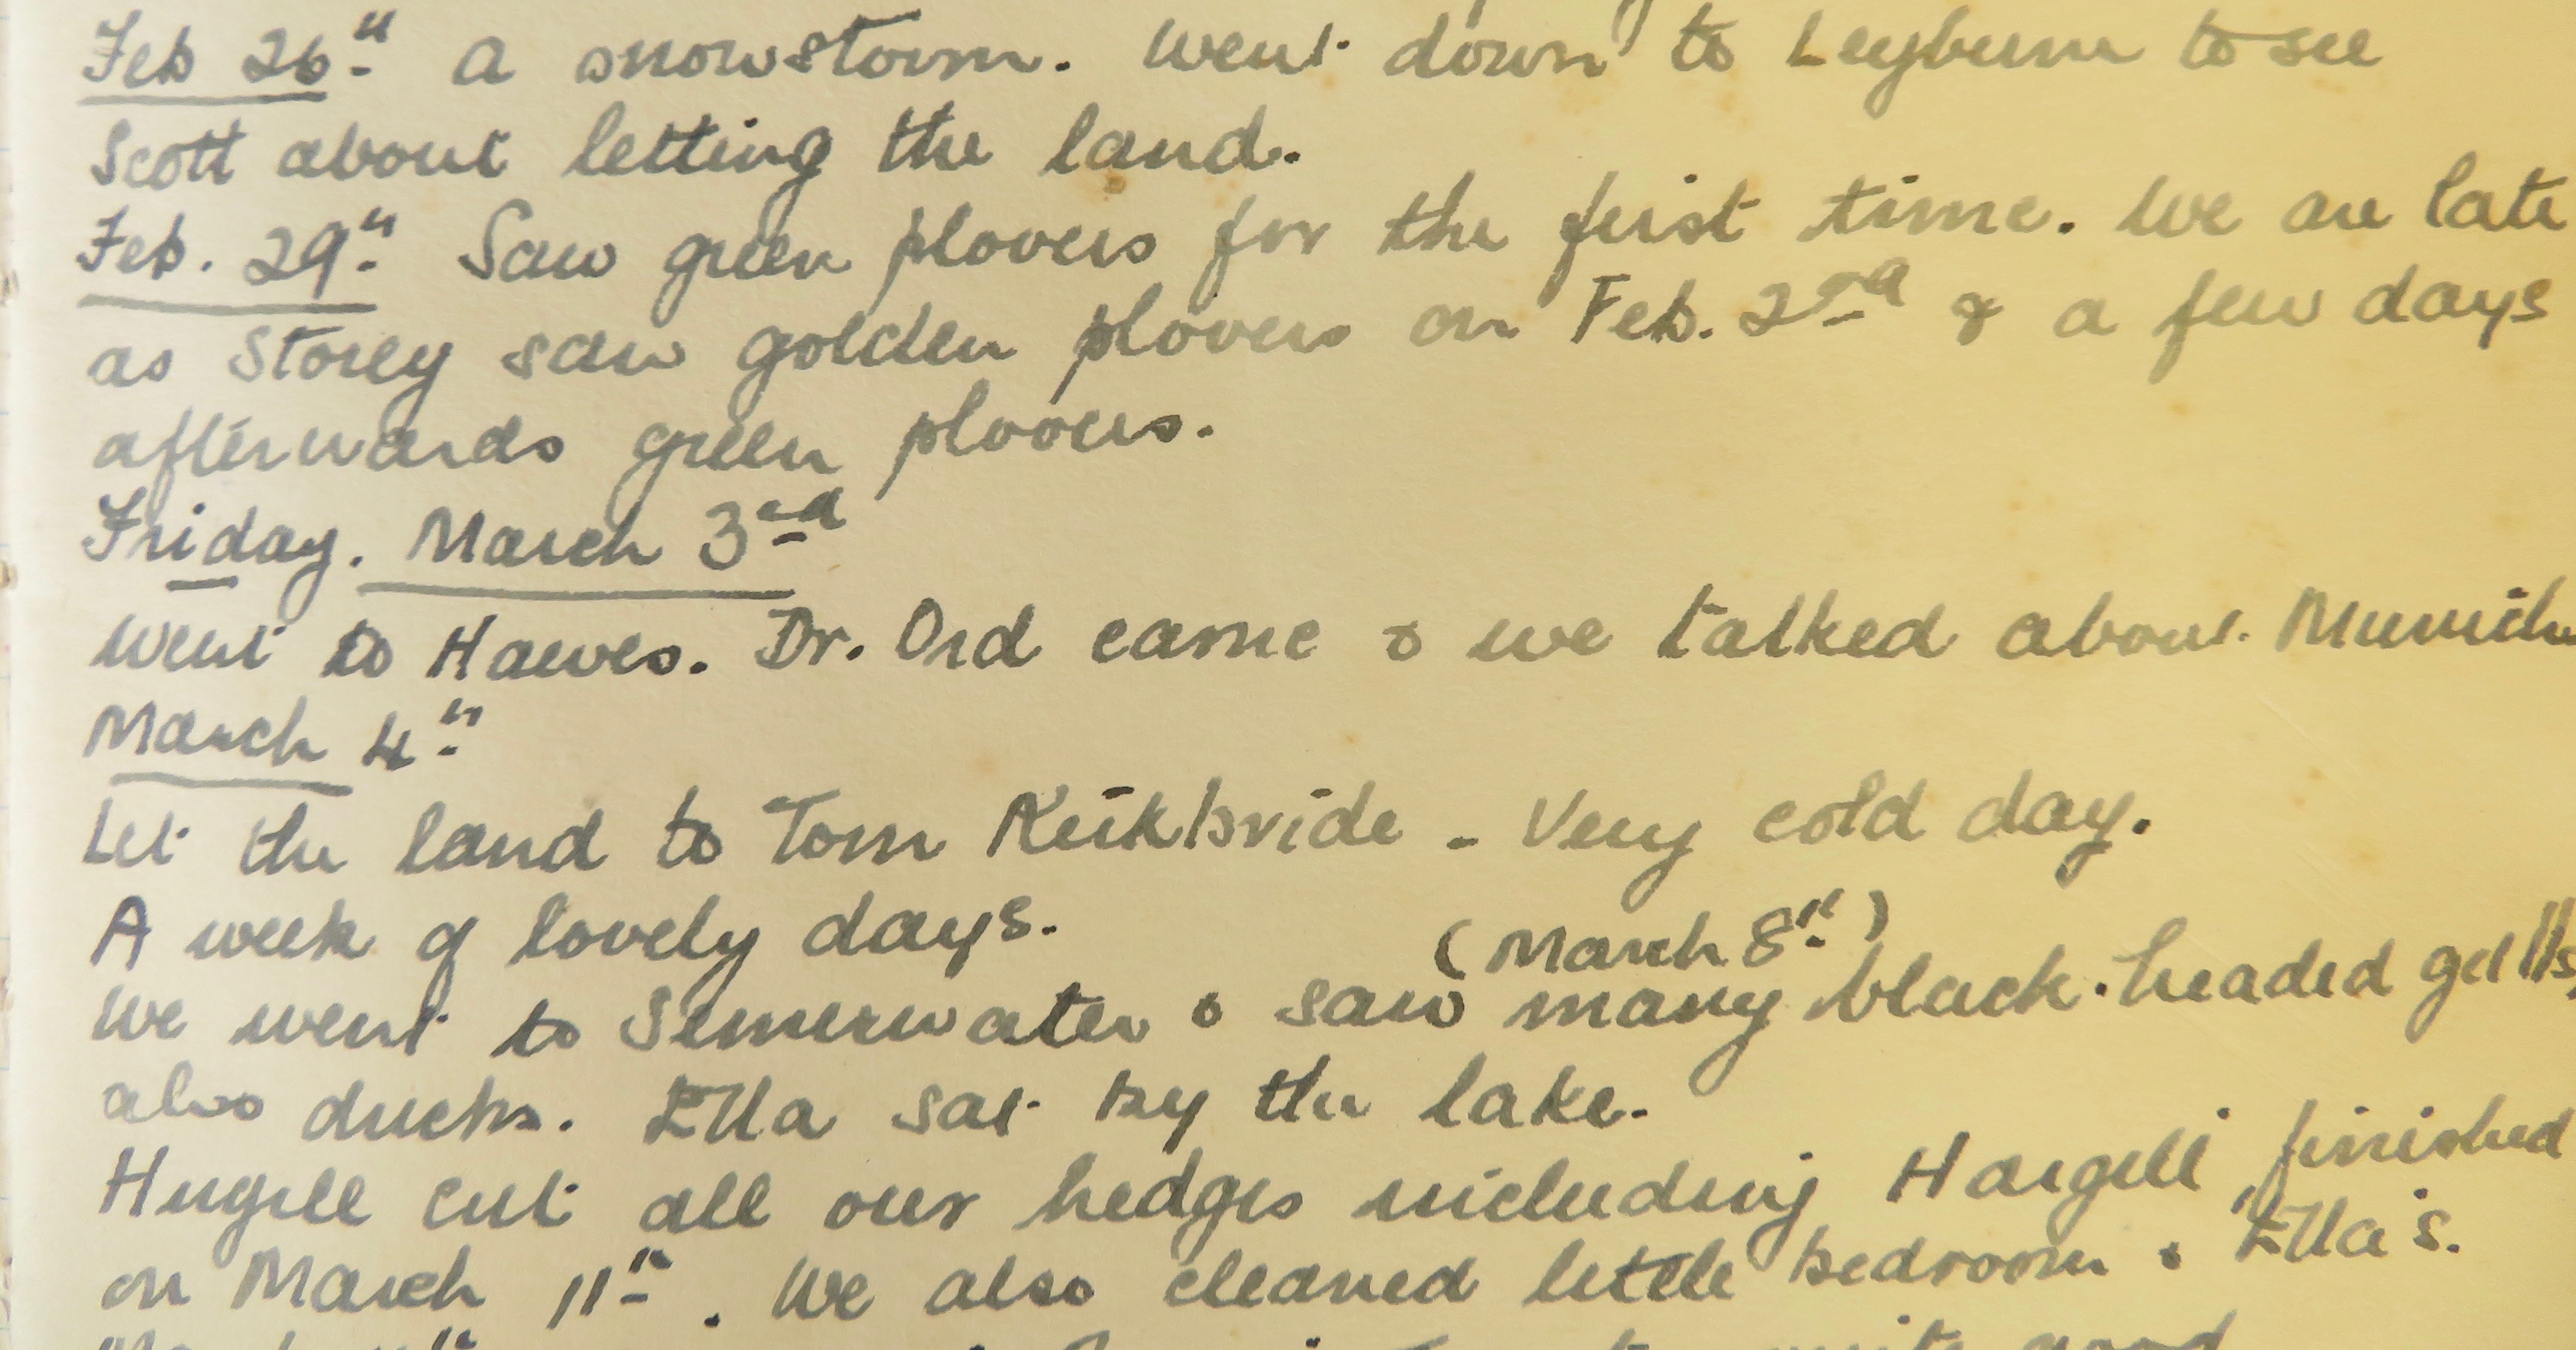 Feb 26th A snowstorm. Went down to Leyburn to see
Scott about letting the land.
Feb. 29th Saw green plovers for the first time. We are late
as Storey saw golden plovers on Feb. 2nd & a few days
afterwards green plovers.
Friday. March 3rd
Went to Hawes. Dr. Ord came & we talked about Munich
March 4th
Let the land to Tom Kirkbride - Very cold day.
A week of lovely days.
(March 8th)
We went to Semerwater & saw many black-headed gulls,
also ducks. Ella sat by the lake.
Hugill cut all our hedges including Hargill finished
on March 11th. We also cleaned little bedroom & Ella's.
quite good